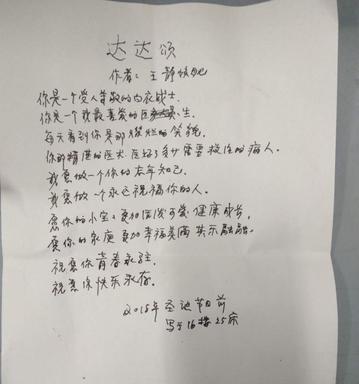 达达颂
作者：王静
你是一个受人尊敬的白衣战士.
你是一个我最喜爱的医生.
每天看到你是那灿烂的笑貌.
你那精湛的医术医好了多少需要救治的病人.
我愿做一个你的知己.
我愿做一个永远祝福你的人.
愿你的小宝宝更加活泼可爱健康成长,
愿你的家庭更加幸福美满其乐融融.
祝愿你青春永驻.
祝愿你快乐永存.
2015年圣诞节日前
写于16楼25床